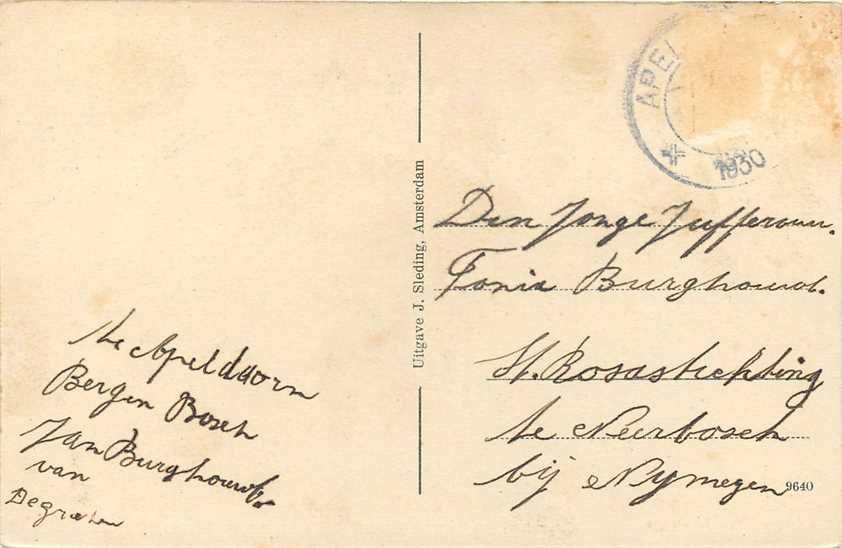 APEL
1930
Den Jonge Jufferouw.
Tonia Burghouwt.
St. Rosastichting
te Neerbosch
bij Nymegen
9640
Uitgave J. Sleding, Amsterdam
te Apeldoorn
Bergen Bosch
Jan Burghouwt
van